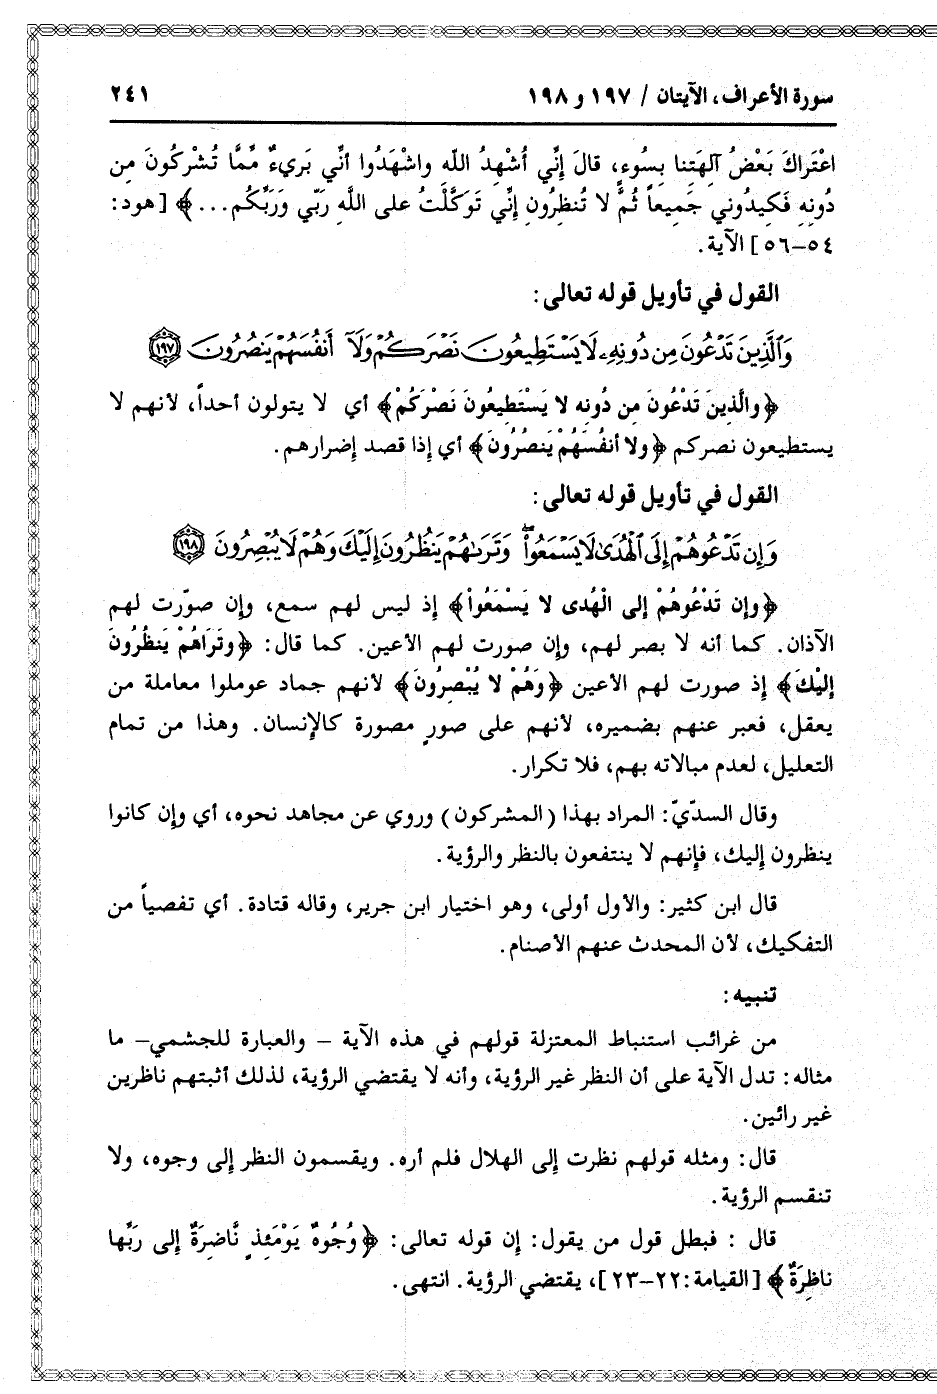 سورة الأعراف، الآيتان / ١٩٧ و ١٩٨ ٢٤١
اعْتَراكَ بَعْضُ آلِهَتِنا بِسُوءٍ، قالَ إِنِّي أُشْهِدُ اللّه واشْهَدُوا أنِّي بَرِيءٌ مِّمَّا تُشْرِكُونَ مِن
دُونِهِ فَكِيدُونِي جَمِيعاً ثُمَّ لا تُنظِرُونِ إِنِّي تَوَكَّلَتُ على اللَّهِ رَبِّي وَرَبِّكُم...﴾ [هود:
٥٤–٥٦] الآية.
القول في تأويل قوله تعالى:
وَٱلَّذِينَ تَدْعُونَ مِن دُونِهِۦ لَا يَسْتَطِيعُونَ نَصْرَكُمْ وَلَآ أَنفُسَهُمْ يَنصُرُونَ ١٩٧
﴿والَّذِينَ تَدْعُونَ مِن دُونه لا يَسْتَطِيعُونَ نَصْرَكُمْ﴾ أي لا يتولون أحداً، لأنهم لا
يستطيعون نصركم ﴿ولا أنفُسَهُمْ يَنصُرُونَ﴾ أي إذا قصد إضرارهم.
القول في تأويل قوله تعالى:
وَإِن تَدْعُوهُمْ إِلَى ٱلْهُدَىٰ لَا يَسْمَعُوا۟ ۖ وَتَرَىٰهُمْ يَنظُرُونَ إِلَيْكَ وَهُمْ لَا يُبْصِرُونَ ١٩٨
﴿وإن تَدْعُوهُمْ إلى الْهُدى لا يَسْمَعُواْ﴾ إذ ليس لهم سمع، وإن صوّرت لهم
الآذان. كما أنه لا بصر لهم، وإن صورت لهم الأعين. كما قال: ﴿وتَرَاهُمْ يَنظُرُونَ
إلَيْكَ﴾ إذ صورت لهم الأعين ﴿وَهُمْ لا يُبْصِرُونَ﴾ لأنهم جماد عوملوا معاملة من
يعقل، فعبر عنهم بضميره، لأنهم على صورٍ مصورة كالإنسان. وهذا من تمام
التعليل، لعدم مبالاته بهم، فلا تكرار.
وقال السدّيّ: المراد بهذا (المشركون) وروي عن مجاهد نحوه، أي وإن كانوا
ينظرون إليك، فإنهم لا ينتفعون بالنظر والرؤية.
قال ابن كثير: والأول أولى، وهو اختيار ابن جرير، وقاله قتادة. أي تفصياً من
التفكيك، لأن المحدث عنهم الأصنام.
تنبيه:
من غرائب استنباط المعتزلة قولهم في هذه الآية – والعبارة للجشمي– ما
مثاله: تدل الآية على أن النظر غير الرؤية، وأنه لا يقتضي الرؤية، لذلك أثبتهم ناظرين
غير رائين.
قال: ومثله قولهم نظرت إلى الهلال فلم أره. ويقسمون النظر إلى وجوه، ولا
تنقسم الرؤية.
قال : فبطل قول من يقول: إن قوله تعالى: ﴿وُجُوهٌ يَوْمَئِذٍ نَّاضِرَةٌ إلى رَبِّها
ناظِرَةٌ﴾ [القيامة:٢٢–٢٣]، يقتضي الرؤية. انتهى.